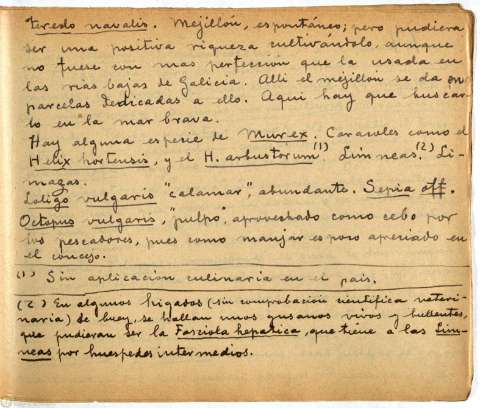 teredo navalis. Mejillón, espontáneo; pero pudiera
ser una positiva riqueza cultivándolo, aunque
no fuese con mas perfección que la usada en
las rias bajas de Galicia. Alli el mejillón se da en
parcelas dedicadas a ello. Aqui hay que buscar
lo en la mar brava.
Hay alguna especie de Murex. Caracoles como el
Helix hortensis, y el H. arbustorum (1). Limneas. (2) Li-
mazas.
Loligo vulgaris "calamar", abundante. Sepia off.
Octopus vulgaris, "pulpo", aprovechado como cebo por
los pescadores, pues como manjar es poco apreciado en
el concejo.
(1) Sin aplicación culinaria en el pais.
(2) En algunos higados (sin comprobación cientifica veteri-
naria) de buey, se hallan unos gusanos vivos y bullentes,
que pudieran ser la Fasciola hepatica, que tiene a las Lim-
neas por huespedes intermedios.